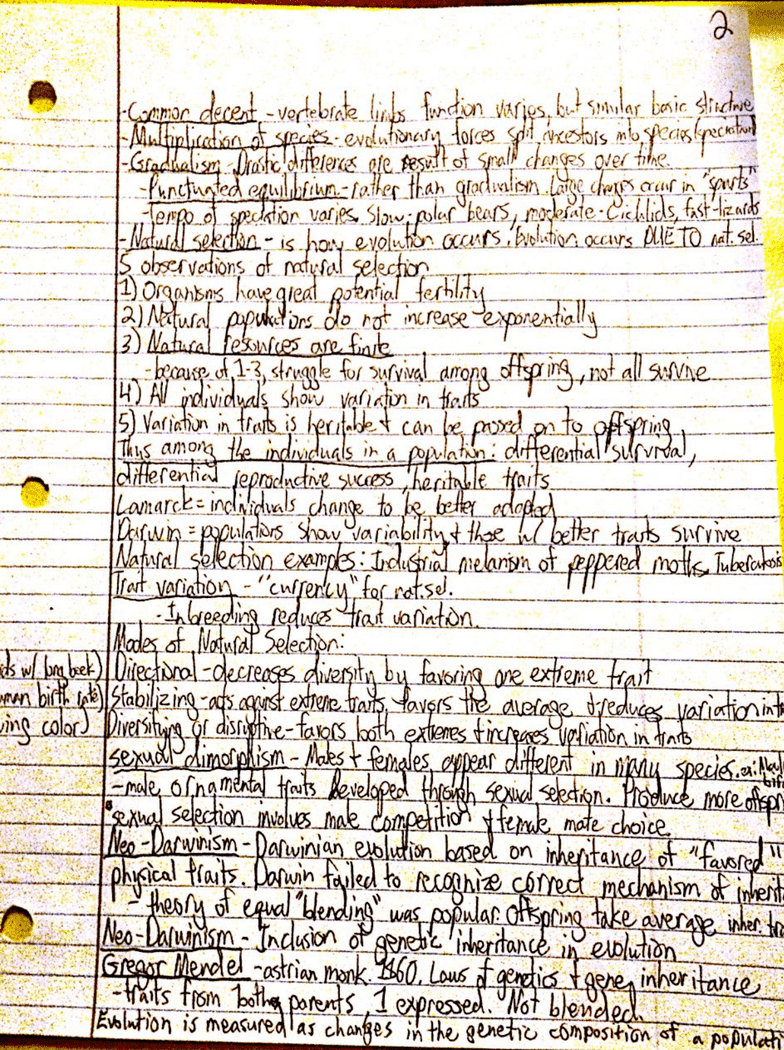 2
-Common decent - vertebrate limbs function varies, but similar basic structure
-Multiplication of species - evolutionary forces split ancestors into species (speciation)
-Gradualism - Drastic differences are result of small changes over time.
-Punctuated equilibrium - rather than gradualism. Large changes occur in "spurts"
-tempo of speciation varies. Slow - polar bears, moderate - Cichlids, fast - lizards
-Natural selection - is how evolution occurs. Evolution occurs DUE TO nat. sel.
5 observations of natural selection
1) Organisms have great potential fertility
2) Natural populations do not increase exponentially
3) Natural resources are finite
-because of 1-3, struggle for survival among offspring, not all survive
4) All individuals show variation in traits
5) Variation in traits is heritable & can be passed on to offspring
Thus among the individuals in a population: differential survival,
differential reproductive success, heritable traits
Lamarck = individuals change to be better adapted
Darwin = populations show variability & those w/ better traits survive
Natural selection examples: Industrial melanism of peppered moths, Tuberculosis
Trait variation - "currency" for nat. sel.
- Inbreeding reduces trait variation.
Modes of Natural Selection:
w/ long beek) Directional - decreases diversity by favoring one extreme trait
birth rate) Stabilizing - acts against extreme traits, favors the average & reduces variation in
color) Diversifying or disruptive - favors both extremes & increases variation in traits
sexual dimorphism - Males & females appear different in many species. ex:
-male ornamental traits developed through sexual selection. Produce more offspr
sexual selection involves male competition & female mate choice
Neo-Darwinism - Darwinian evolution based on inheritance of "favored"
physical traits. Darwin failed to recognize correct mechanism of inherit
- theory of equal "blending" was popular. Offspring take average inher. tra
Neo-Darwinism - Inclusion of genetic inheritance in evolution
Gregor Mendel - astrian monk. 1860. Laws of genetics & gene inheritance
-traits from both parents 1 expressed. Not blended.
Evolution is measured as changes in the genetic composition of a populati